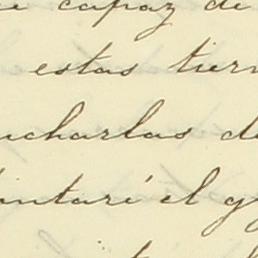 capaz de
estas tier
ncharlas d
intaré el g